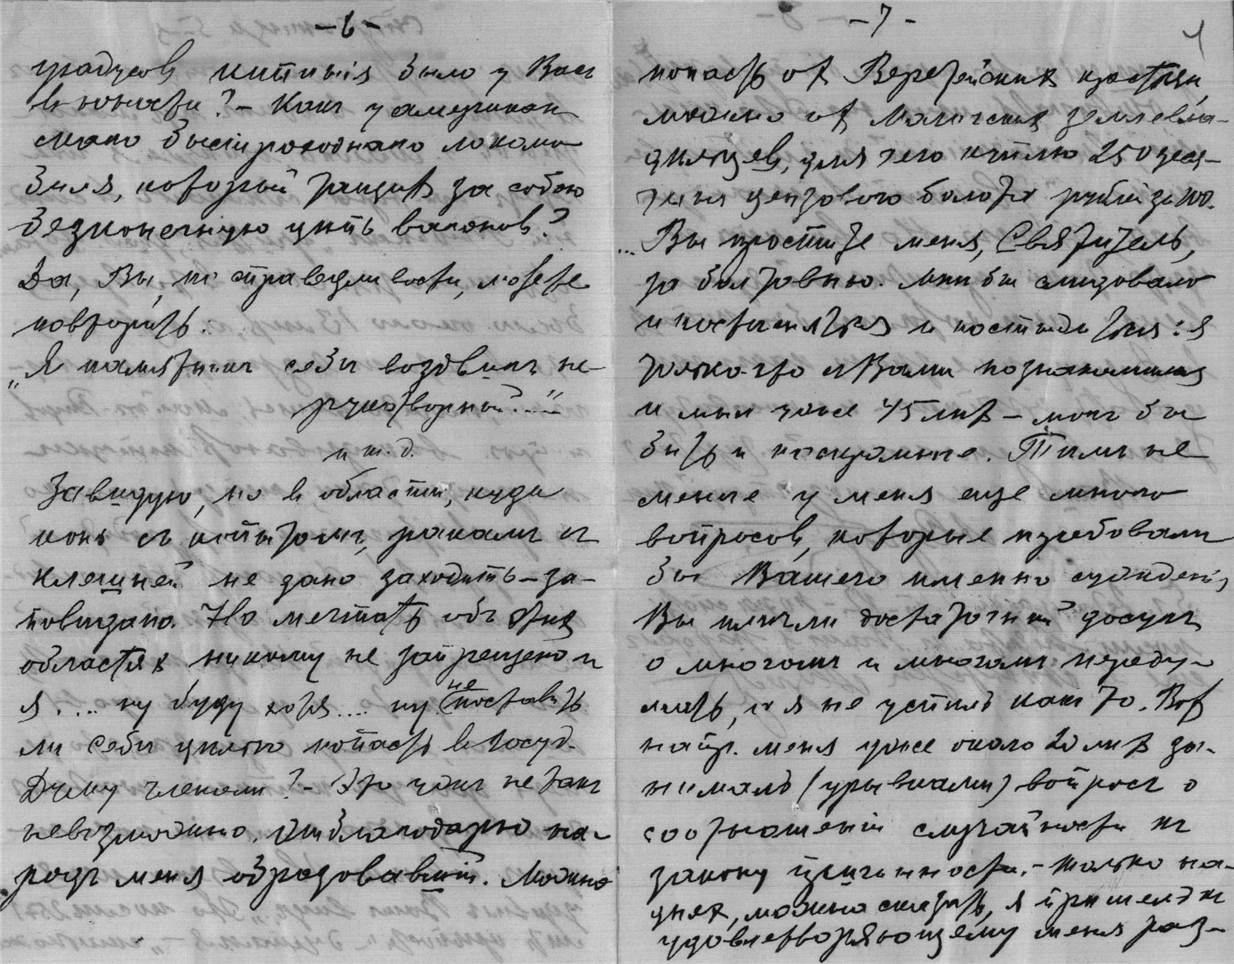 -6-
градусов кипѣнія было у Васъ
в юности? - Какъ у американ
скаго быстроходнаго локомо
биля, который тащитъ за собою
безконечную цѣпь вагоновъ?
Да, Вы, по справедливости, можете
повторить:
„Я памятникъ себѣ воздвигъ не-
рукотворный..."
и т. д.
Завидую, но в области, куда
конь съ копытомъ, ракамъ съ
клешней не дано заходить - за-
повѣдано. Но мечтать объ этих
областях никому не запрещено и
я .... ну буду хотя .... ну не поставить
ли себѣ цѣлью попасть в Госуд.
Думу членомъ? - Это ужъ не такъ
невозможно. Отблагодарю на-
родъ меня образовавшій. Можно
-7-
попасть от Верейских крестьян,
можно от Можайских землевла-
дѣльцев, для чего куплю 250 деся-
тин цензового болота рублей за 100.
Вы простите меня, Святитель,
за болтовню. Мнѣ бы слѣдовало
и постѣсняться и постыдиться: я
только-что с Вами познакомился
и мнѣ уже 45 лѣт - могъ бы
быть и поскромнѣе. Тѣмъ не
менѣе у меня еще много
вопросов, которые требовали
бы Вашего именно сужденія,
Вы имѣли достаточный досугъ
о многомъ и многомъ переду-
мать, а я не успѣлъ какъ то. Вот
напр. меня уже около 20 лѣт за-
нималъ (урывками) вопросъ о
соотношеніи случайности къ
закону причинности. - Только на-
днях, можно сказать, я пришелъ къ
удовлетворяющему меня раз-